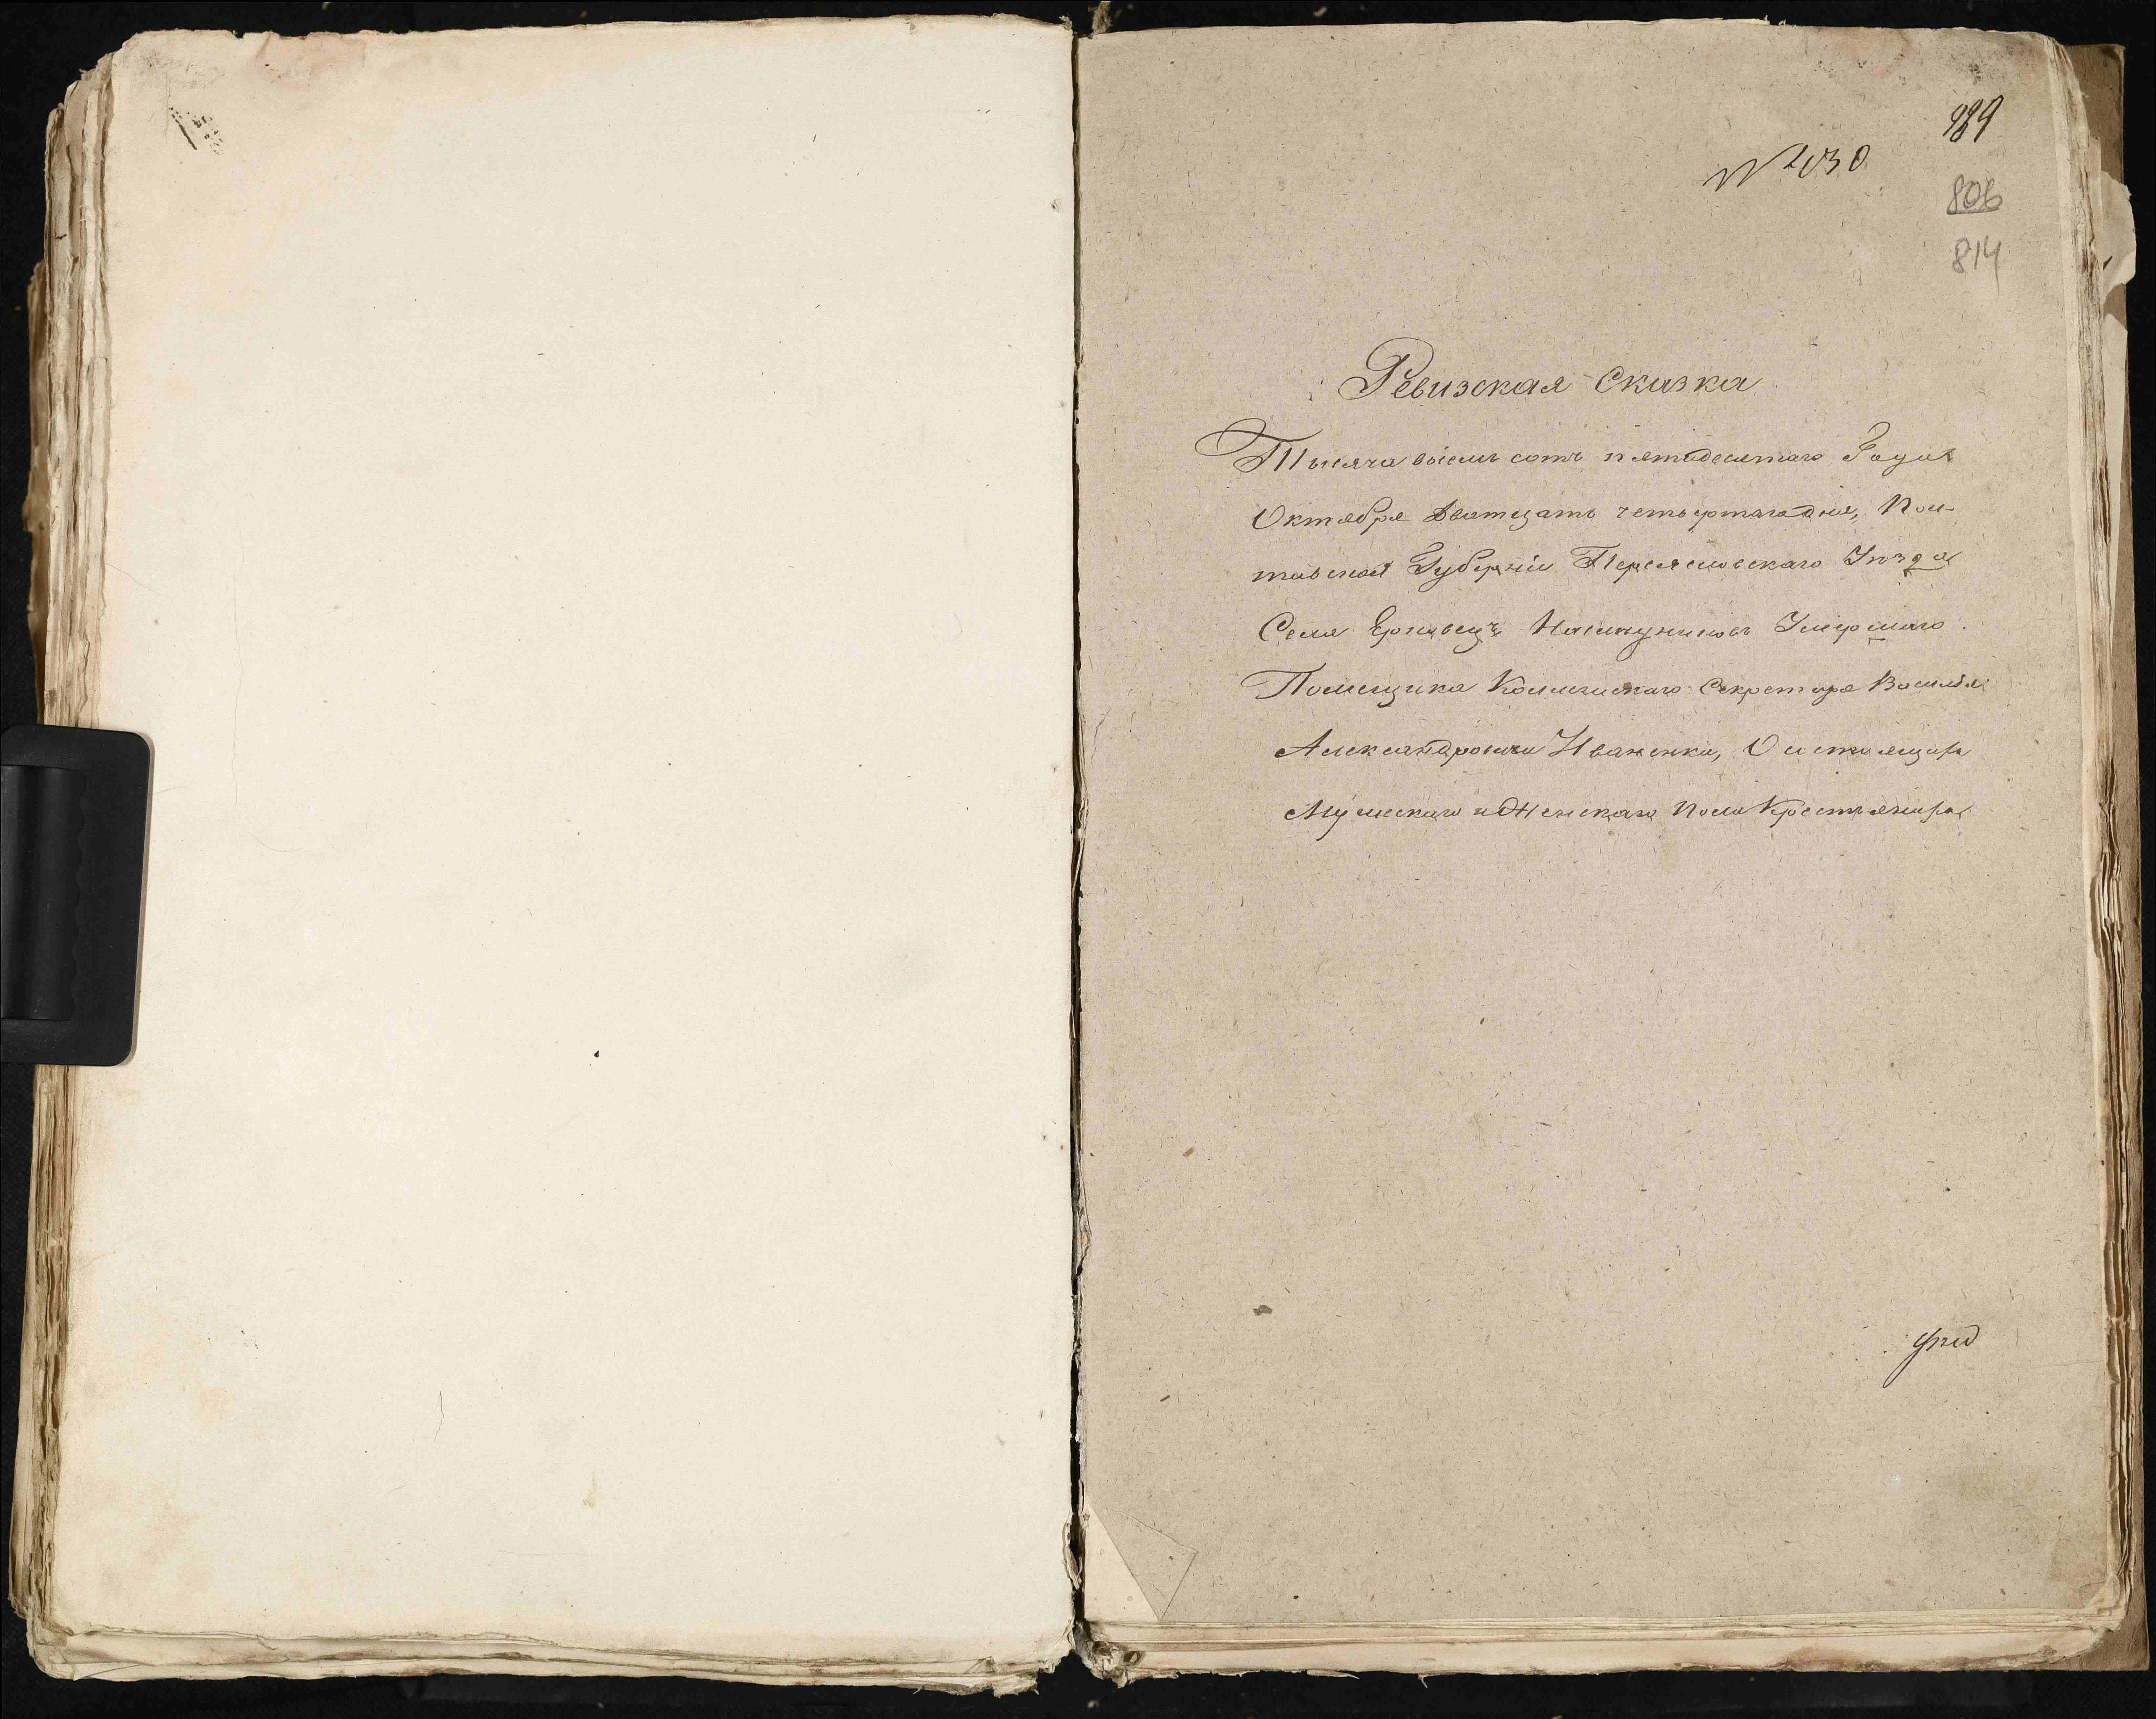 989
№ 230
806
814
Ревизская Сказка
Тысяча восемь сотъ пятидесятаго Года
Октября Дватцать четвертаго дня, Пол-
тавской Губерніи Переясловскаго Уѣзда
Села Ерковець Наследниковъ Умершаго
Помещика Колежскаго Секретаря Василія
Александровича Иваненка, О истоящихъ
Мужескаго и Женскаго пола Крестьянахъ